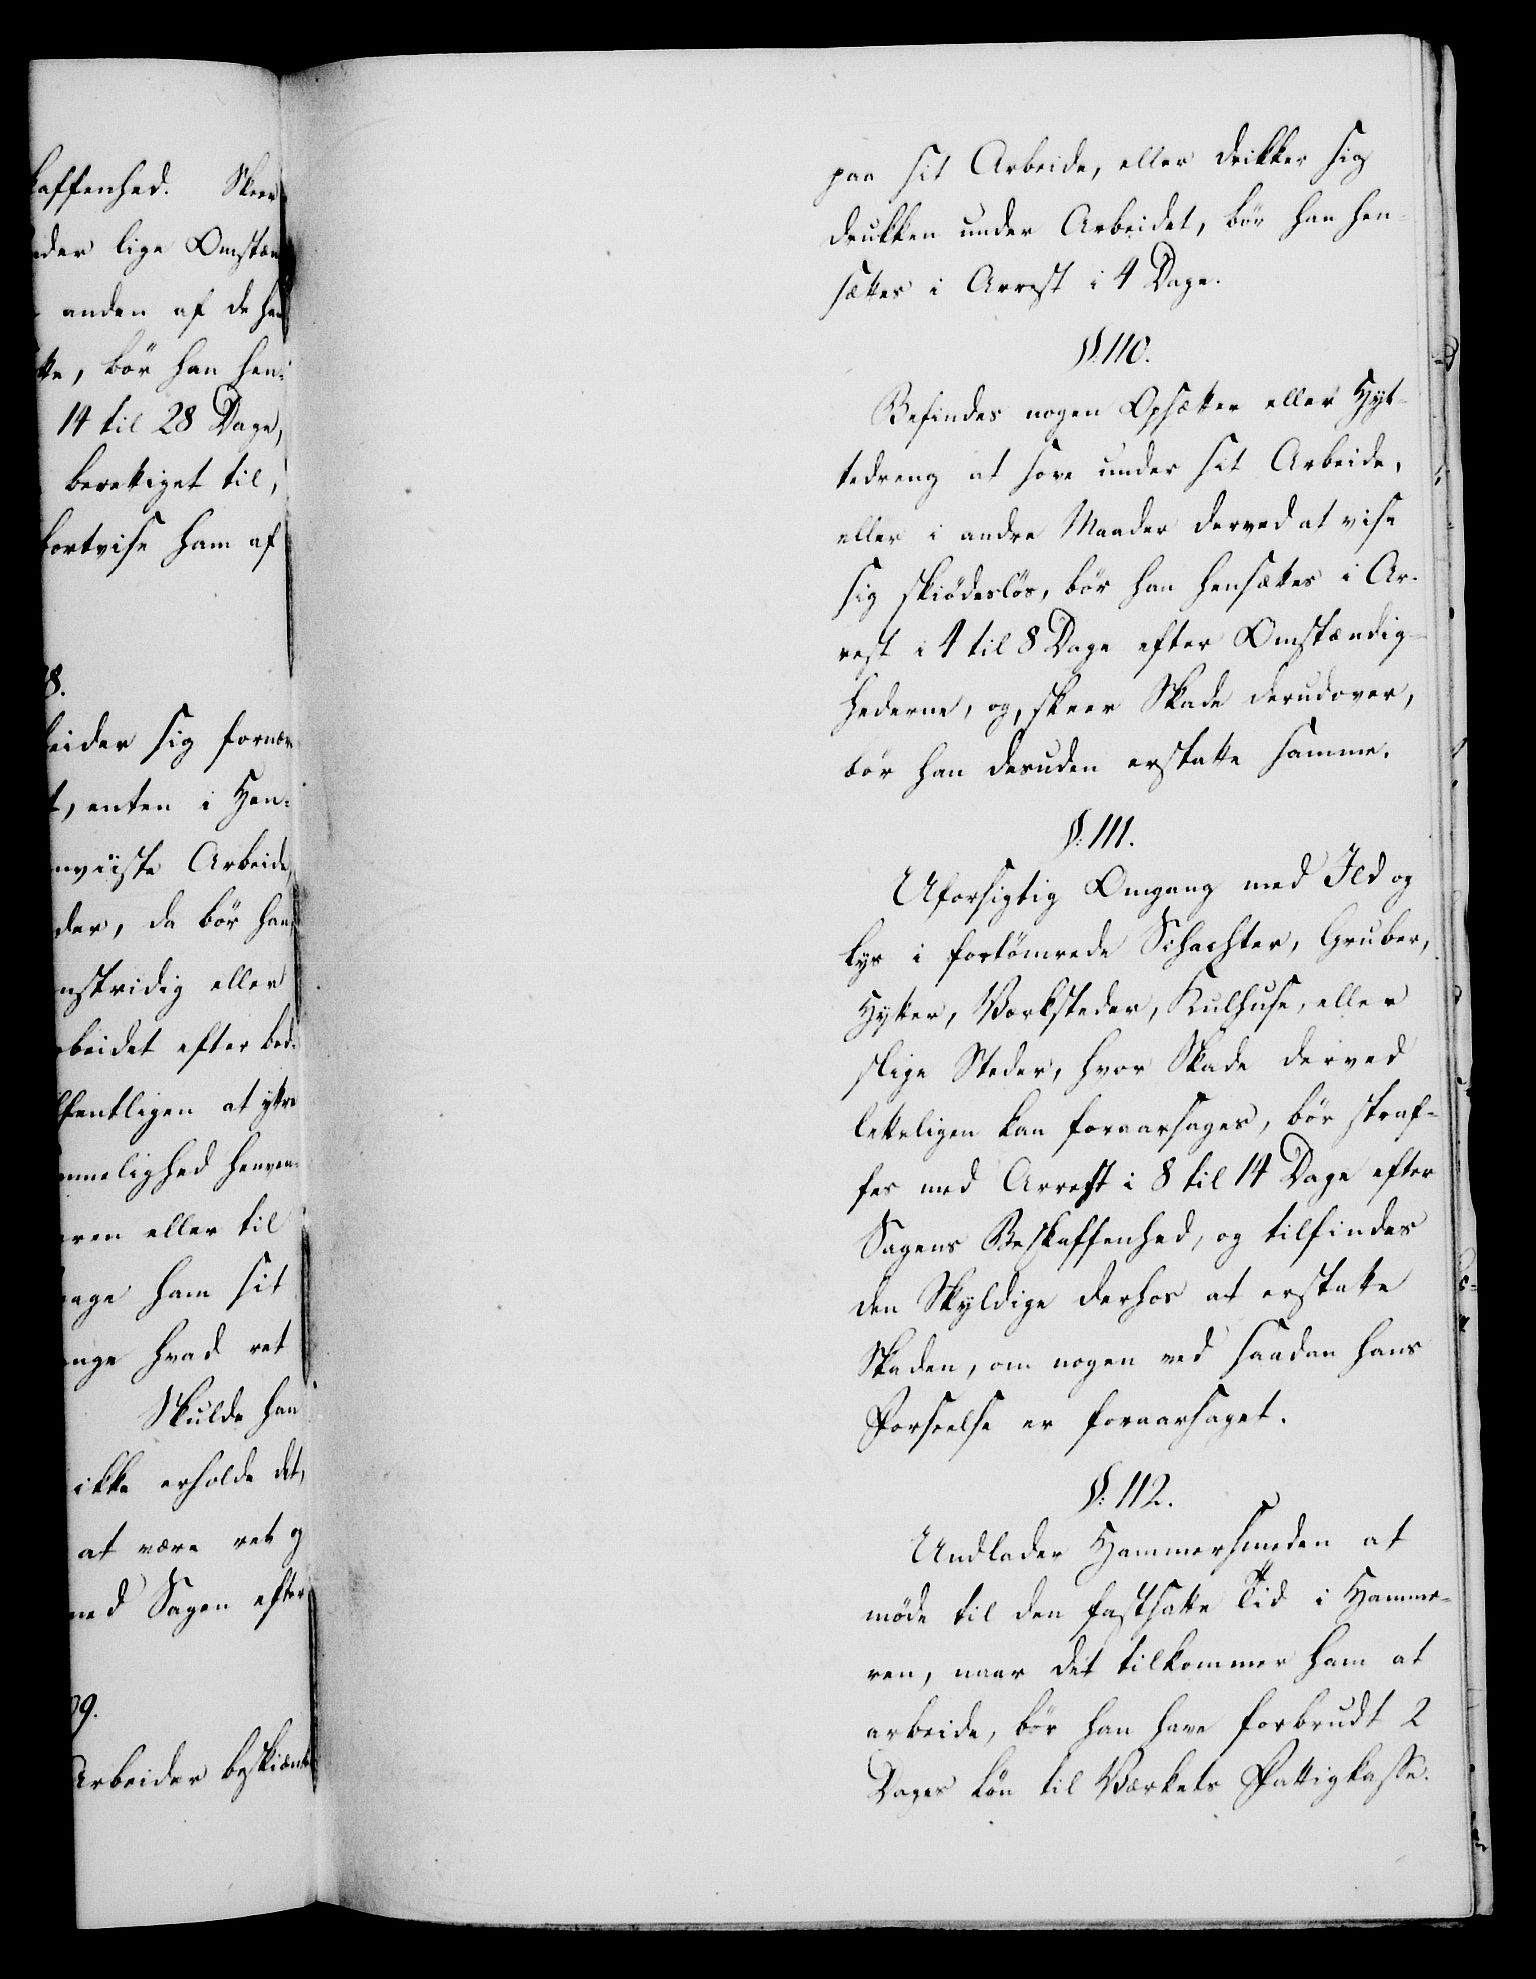 kaffenhed. Skeer
nder lige Omstæn
anden af de hen
tte, bør han hen-
14 til 28 Dage,
berettiget til,
bortvise ham af
8.
beider sig fornær
t, enten i Hen-
nviiste Arbeide,
der, da bør han
nstridig eller
rbeidet efter bed-
ffentligen at yttre
mmelighed henven-
eren eller til
age ham sit
nge hvad ret
Skulde han
ikke erholde det,
at være ret og
med Sagen efter
09.
Arbeider beskiænk
paa sit Arbeide, eller drikker sig
drukken under Arbeidet, bör han hen-
sættes i Arrest i 4 Dage.
§. 110.
Befindes nogen Opsætter eller Hyt-
tedreng at sove under sit Arbeide,
eller i andre Maader derved at vise
sig skiödeslös, bör han hensættes i Ar-
rest i 4 til 8 Dage efter Omstændig-
hederne, og, skeer Skade derudover,
bör han desuden erstatte samme.
§: 111.
Uforsigtig Omgang med Ild og
Lys i fortömrede Schachter, Gruber,
Hytter, Værksteder, Kulhuse, eller
slige Steder, hvor Skade derved
letteligen kan foraarsages, bör straf-
fes med Arrest i 8 til 14 Dage efter
Sagens Beskaffenhed, og tilfindes
den Skyldige derhos at erstatte
Skaden, om nogen ved saadan hans
Forseelse er foraarsaget.
§: 112.
Undlader Hammersmeden at
möde til den fastsatte Tid i Hamme-
ren, naar det tilkommer ham at
arbeide, bör han have forbrudt 2
Dages Lön til Værkets Fattigkasse.